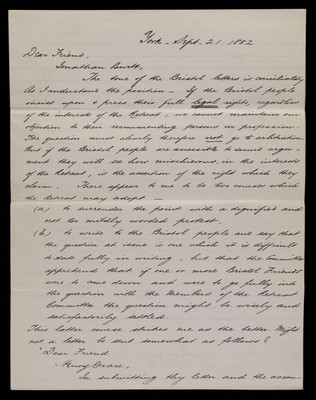 York - Sept. 21. 1882
Dear Friend,
Jonathan Burtt,
The tone of the Bristol letters is conciliatory.
As I understand the position - If the Bristol people
insist upon & press their full legal rights, regardless
of the interests of the Retreat, we cannot maintain our
objection to their recommending persons in profession.
The question must clearly therefore not go to arbitration
But if the Bristol people are amenable to sound argu-
ment they will see how mischievous, in the interests
of the Retreat, is the assertion of the right which they
claim. There appear to me to be two courses which
the Retreat may adopt -
(a) to surrender the point with a dignified and
not too mildly worded protest.
(b) to write to the Bristol people and say that
the question at issue is one which it is difficult
to state fully in writing, but that the Committee
apprehend that if one or more Bristol Friends
were to come down and were to go fully into
the question with the Members of the Retreat
Committee the question might be wisely and
satisfactorily settled.
This latter course strikes me as the better. Might
not a letter be sent somewhat as follows?
"Dear Friend
Henry Grace,
In submitting thy letter and the accom-